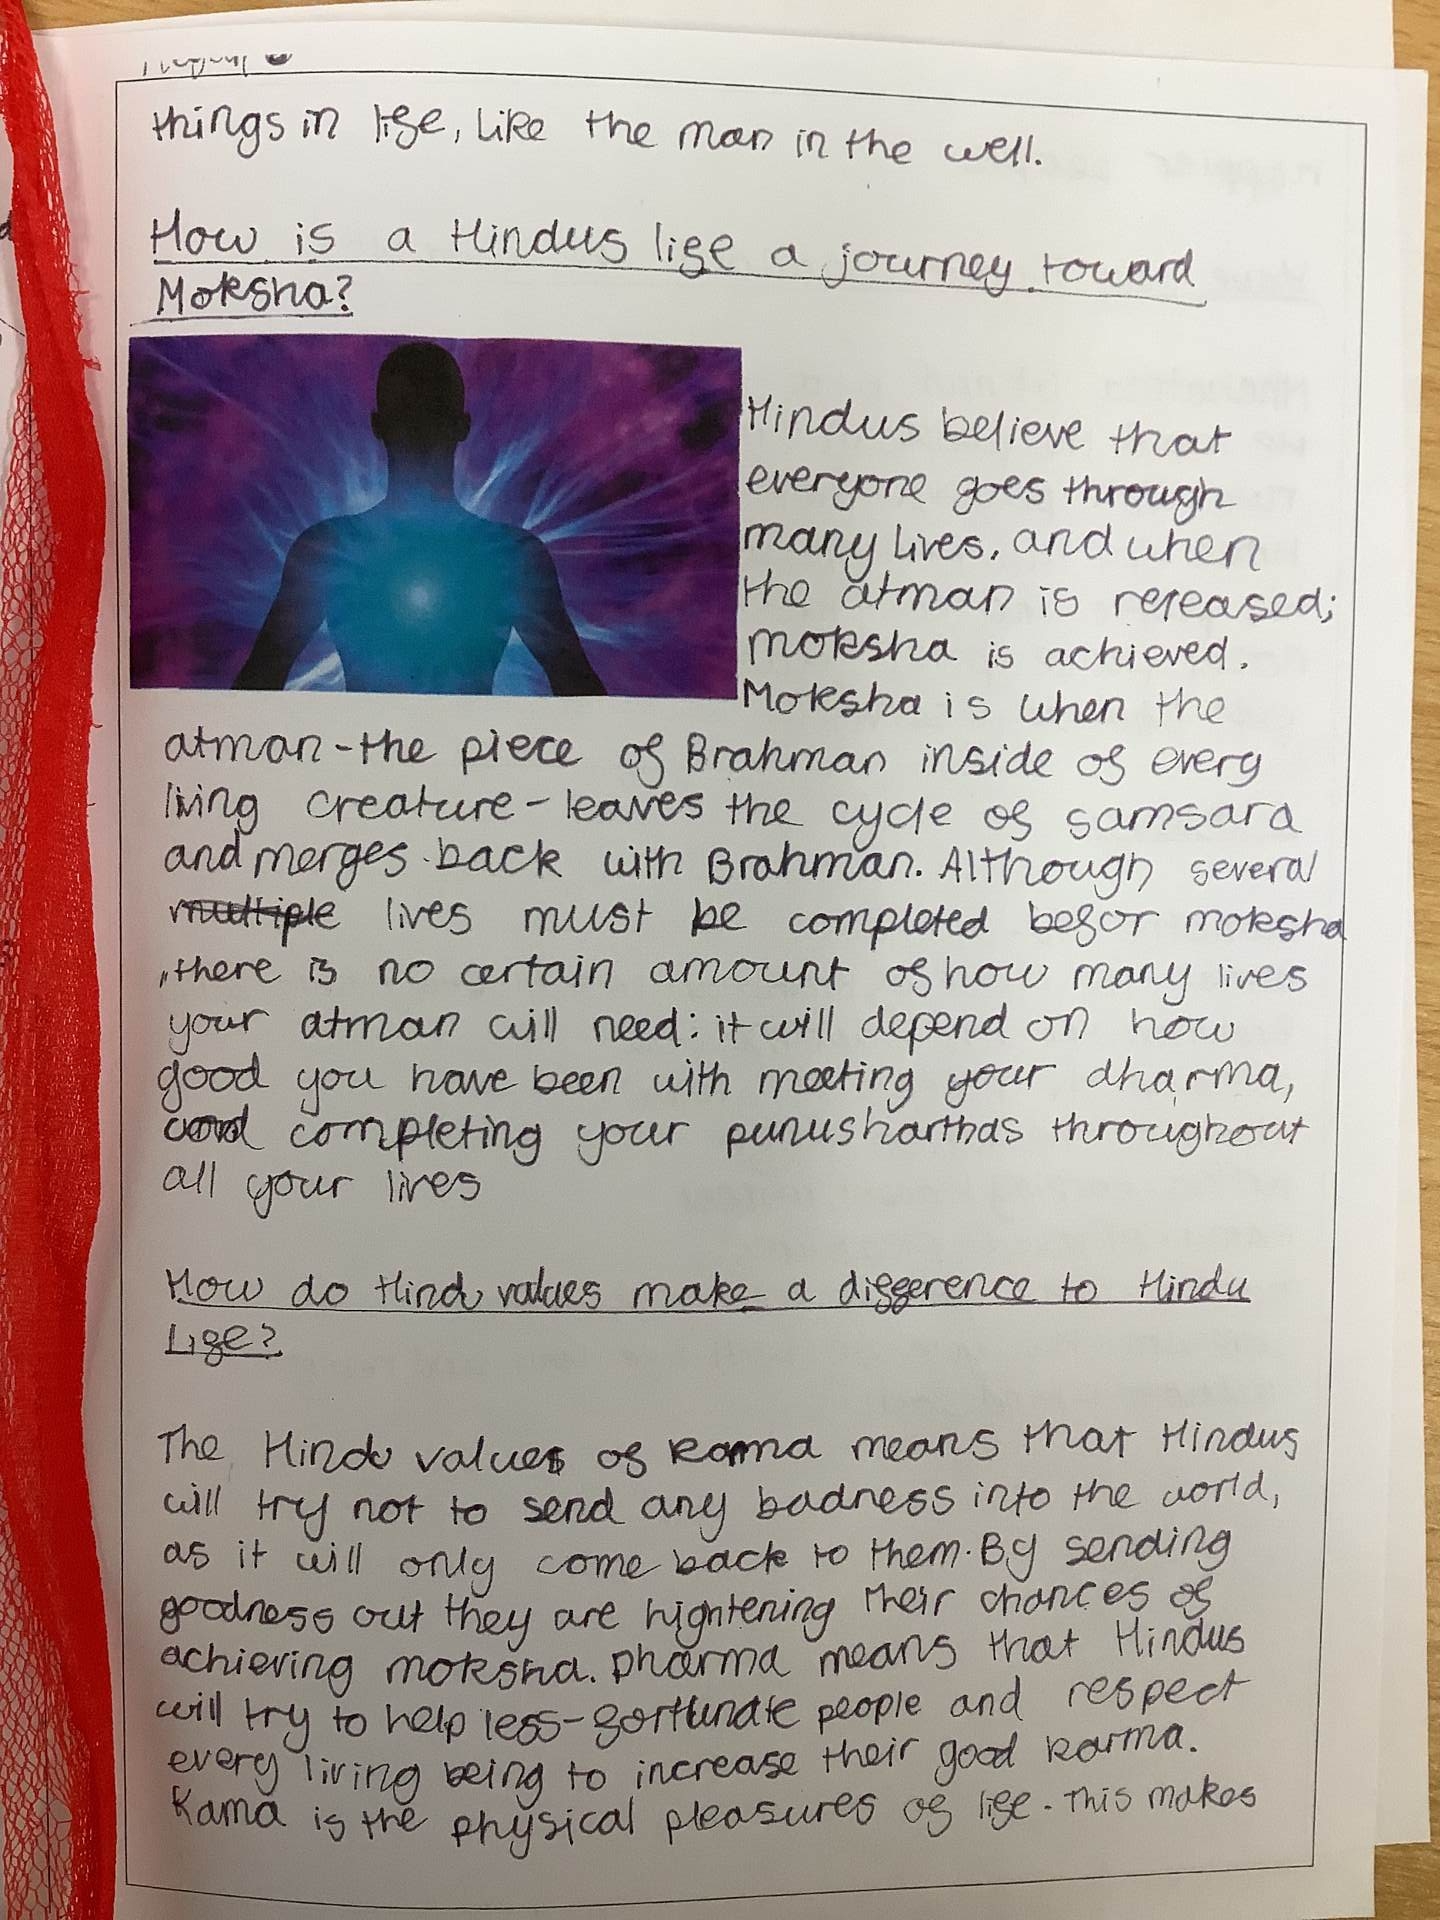 things in life, like the man in the well.
How is a Hindus life a journey toward
Moksha?
Hindus believe that
everyone goes through
many lives, and when
the atman is released;
moksha is achieved.
Moksha is when the
atman-the piece of Brahman inside of every
living creature-leaves the cycle of samsara
and merges back with Brahman. Although several
multiple lives must be completed befor moksha
,there is no certain amount of how many lives
your atman will need: it will depend on how
good you have been with meeting your dharma,
and completing your purusharthas throughout
all your lives
How do Hindu values make a difference to Hindu
Life?
The Hindu values of karma means that Hindus
will try not to send any badness into the world,
as it will only come back to them. By sending
goodness out they are hightening their chances of
achieving moksha. Dharma means that Hindus
will try to help less-fortunate people and respect
every living being to increase their good karma.
Kama is the physical pleasures of life. This makes